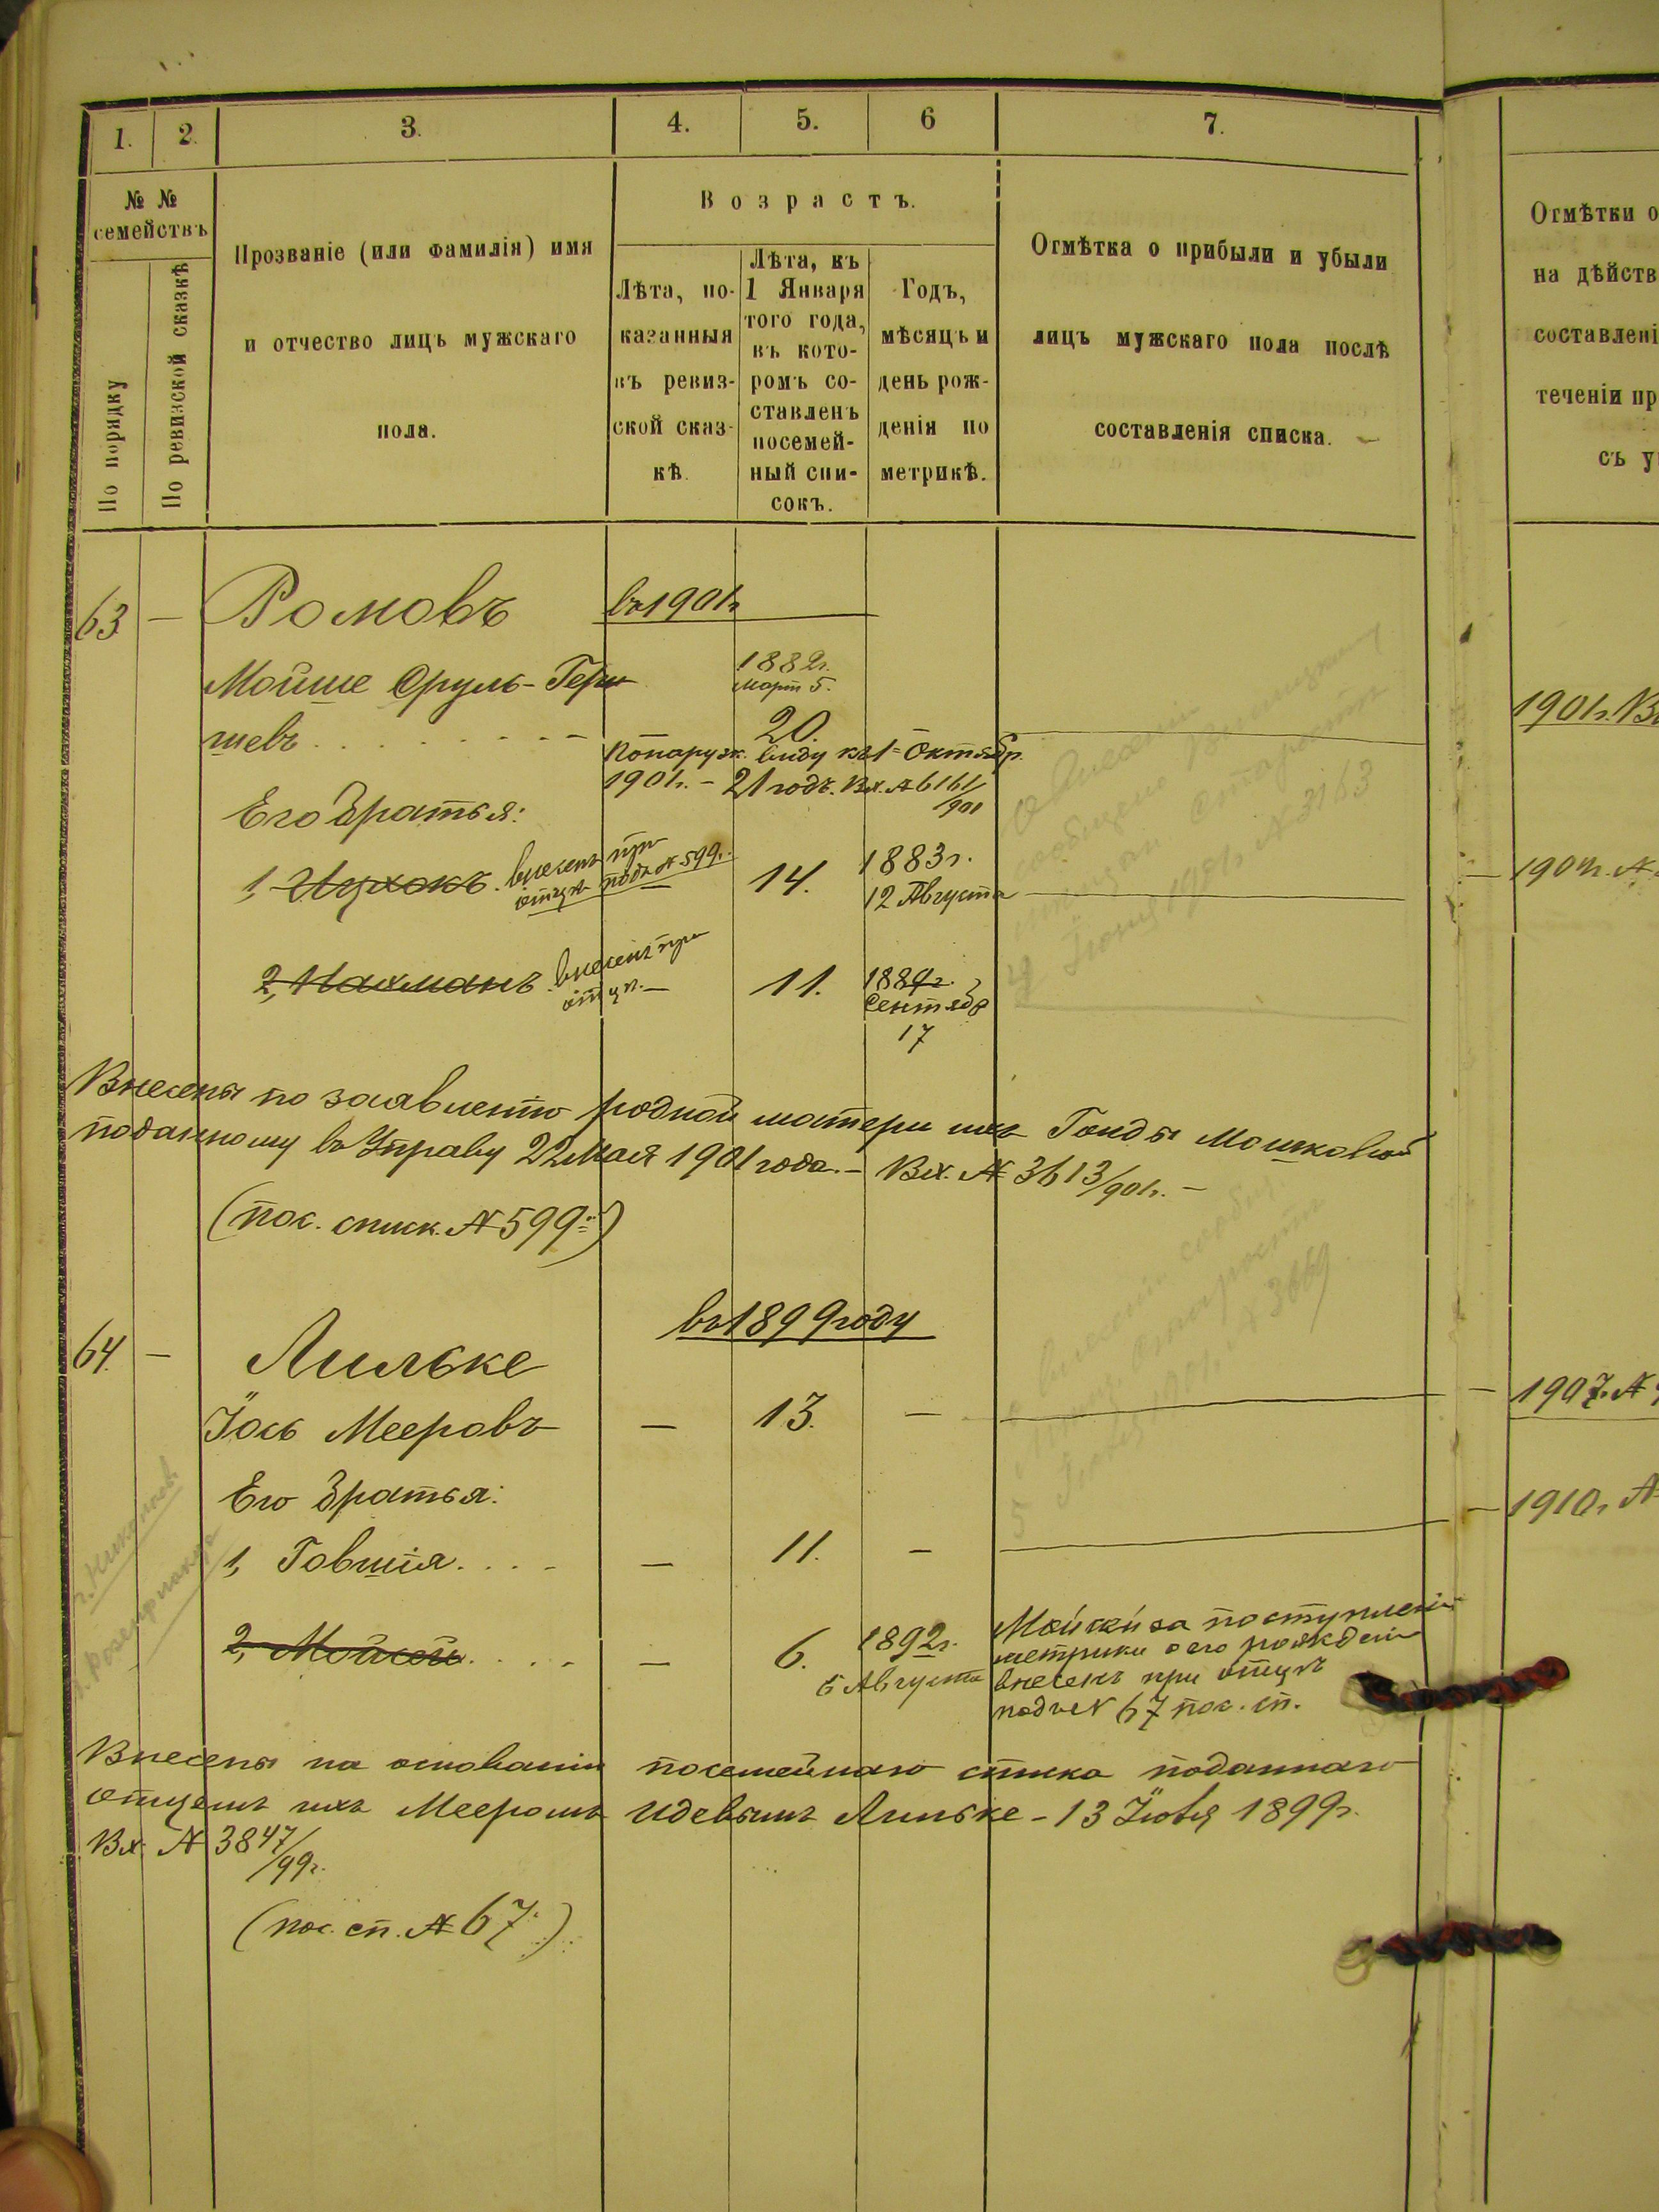 1.
2.
3.
4.
5.
6
7.
№ №
семействъ
По порядку
По ревизской сказкѣ
Прозваніе (или фамилія) имя
и отчество лицъ мужскаго
пола.
Возрастъ.
Лѣта, по-
казанныя
въ ревиз-
ской сказ-
кѣ.
Лѣта, къ
1 Января
того года,
въ кото-
ромъ со-
ставленъ
посемей-
ный спи-
сокъ.
Годъ,
мѣсяцъ и
день рож-
денія по
метрикѣ.
Отмѣтка о прибыли и убыли
лицъ мужскаго пола послѣ
составленія списка.
Отмѣтки о
на дѣйств
составлені
теченіи пр
съ у
63 — Ромовъ
въ 1901г
Мойше Сруль-Герш
шевъ
1882г.
Март 5.
20.
По наруж. виду къ 1 Октябр.
1901г. – 21 годъ. Вх. № 6161/901
1901г.
Его братья:
1, Ицхокъ. внесенъ при
отцѣ подъ № 599.
14.
1883г.
12 Августа
2, Нахманъ внесенъ при
отцѣ. —
11.
1889г.
Сентябр
17
Внесены по заявленію родной матери ихъ Гонды Мошковой
поданному въ Управу 22 Мая 1901 года. – Вх. № 3613/901г. –
(пос. списк. № 599)
64. — Лильке
въ 1899 году
Іось Мееровъ — 13. —
1907. №
Его братья:
1910г. №
1, Говшія.... — 11. —
2, Мойсей.... — 6.
1892г.
6 Августа
поступлені
метрики о его рожденіи
внесенъ при отцѣ
подъ № 67 пос. сп.
Внесены на основаніи посемейнаго списка поданнаго
отцемъ ихъ Мееромъ Идевымъ Лильке – 13 Іюля 1899г.
Вх. № 3847/99г.
(пос. сп. № 67.)